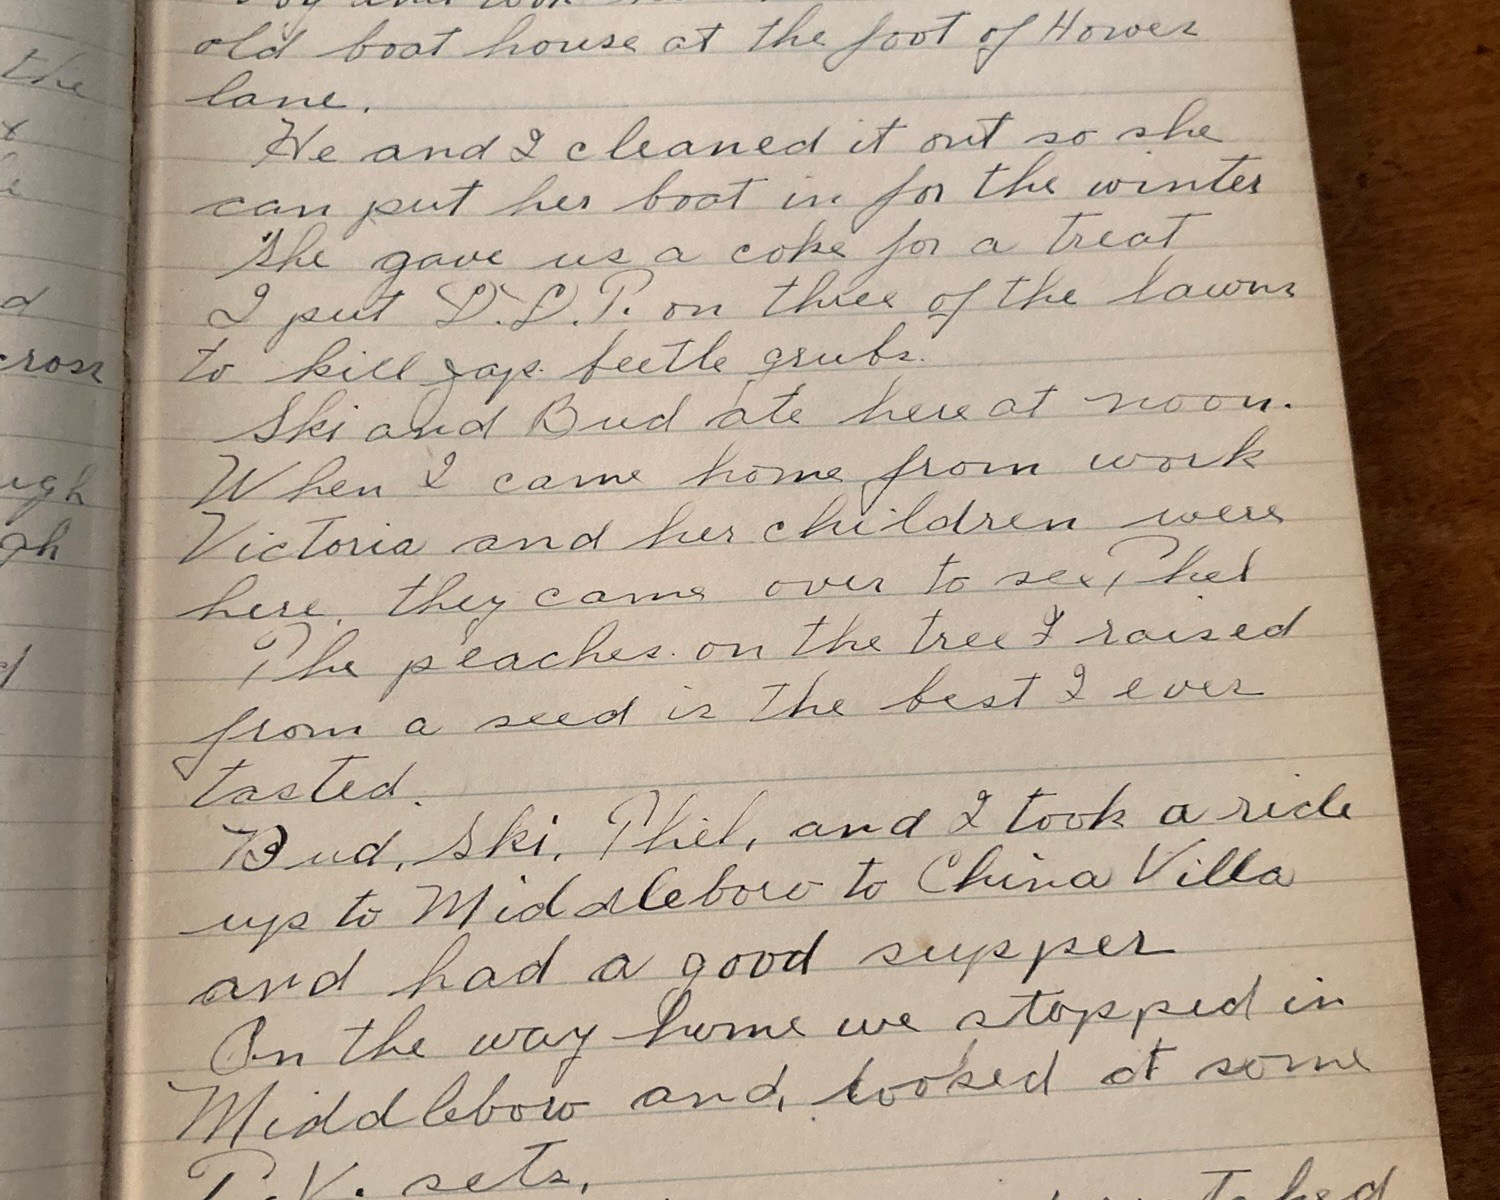 the
old boat house at the foot of Howes
lane.
He and I cleaned it out so she
can put her boat in for the winter
She gave us a coke for a treat
I put D.D.T. on three of the lawns
to kill Jap. beetle grubs.
cross
Ski and Bud ate here at noon.
When I came home from work
Victoria and her children were
here. they came over to see, Phel
The peaches on the tree I raised
from a seed is the best I ever
tasted.
Bud, Ski, Phil, and I took a ride
up to Middleboro to China Villa
and had a good supper
On the way home we stopped in
Middleboro and, looked at some
T.V. sets,